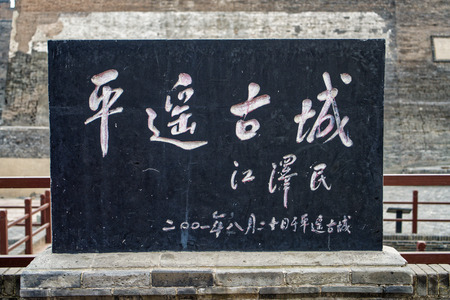 平遥古城
江泽民
二〇〇一年八月二十日于平遥古城